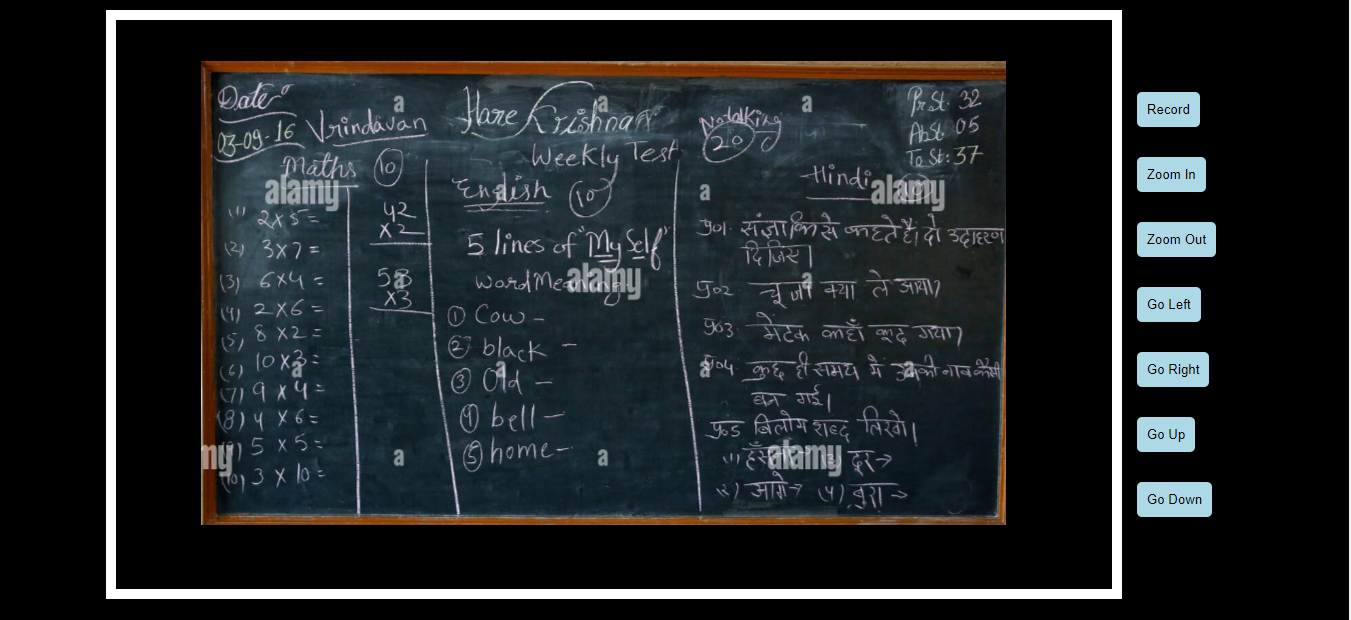 Date
03-09-16 Vrindavan
Hare Krishna
Weekly Test
20
Pr St. 32
Ab St. 05
To St: 37
Maths 10
(1) 2x5=
(2) 3x7=
(3) 6x4=
(4) 2x6=
(5) 8x2=
(6) 10x3=
(7) 9x4=
(8) 4x6=
5x5=
(10) 3x10=
42
x2
58
x3
English 10
5 lines of "My Self"
word Meaning
① Cow -
② black -
③ Old -
④ bell -
⑤ home -
Hindi
प्र01. संज्ञा किसे कहते है। दो उदाहरण
दिजिए।
प्र02 चूजा क्या ले आया?
प्र03. मेंटक कहाँ कूद गया?
प्र04. कुछ ही समय में उनकी नाव कैसी
बन गई।
प्र05 विलोम शब्द लिखो।
(1) 3) दूर→
(2) आगे→ (4) बुरा→
alamy
alamy
alamy
alamy
Record
Zoom In
Zoom Out
Go Left
Go Right
Go Up
Go Down